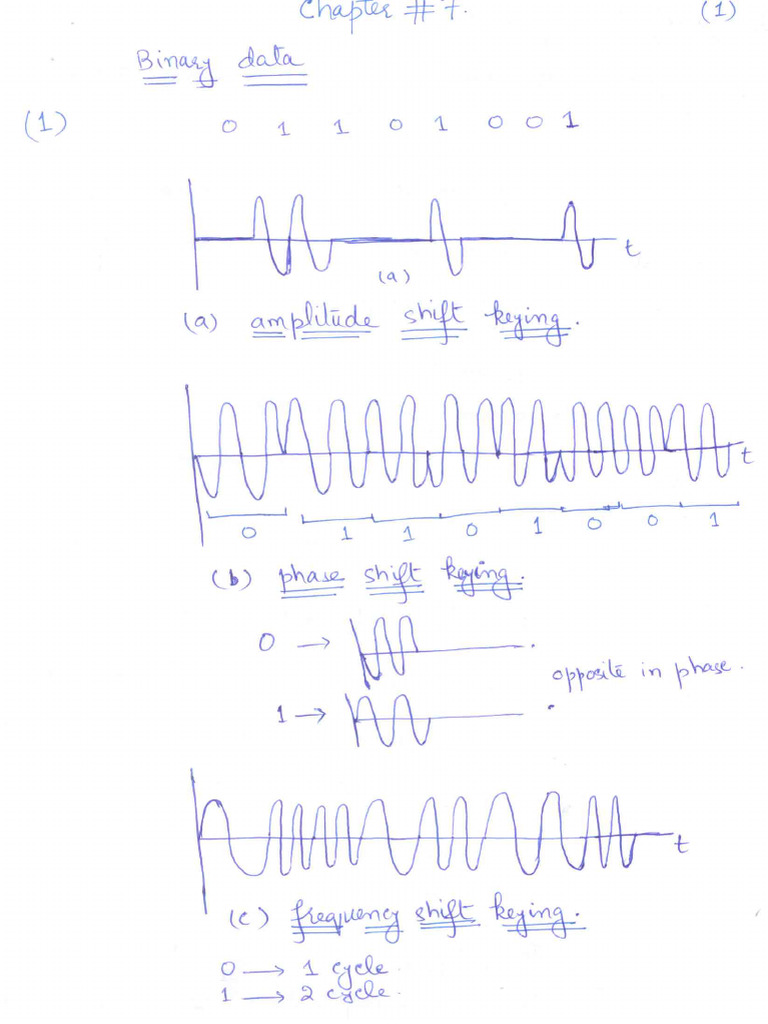 Chapter # 7. (1)
Binary data
(1) 0 1 1 0 1 0 0 1
t
(a)
(a) amplitude shift keying.
t
0 1 1 0 1 0 0 1
(b) phase shift keying.
0 →
opposite in phase.
1 →
t
(c) frequency shift keying.
0 → 1 cycle.
1 → 2 cycle.